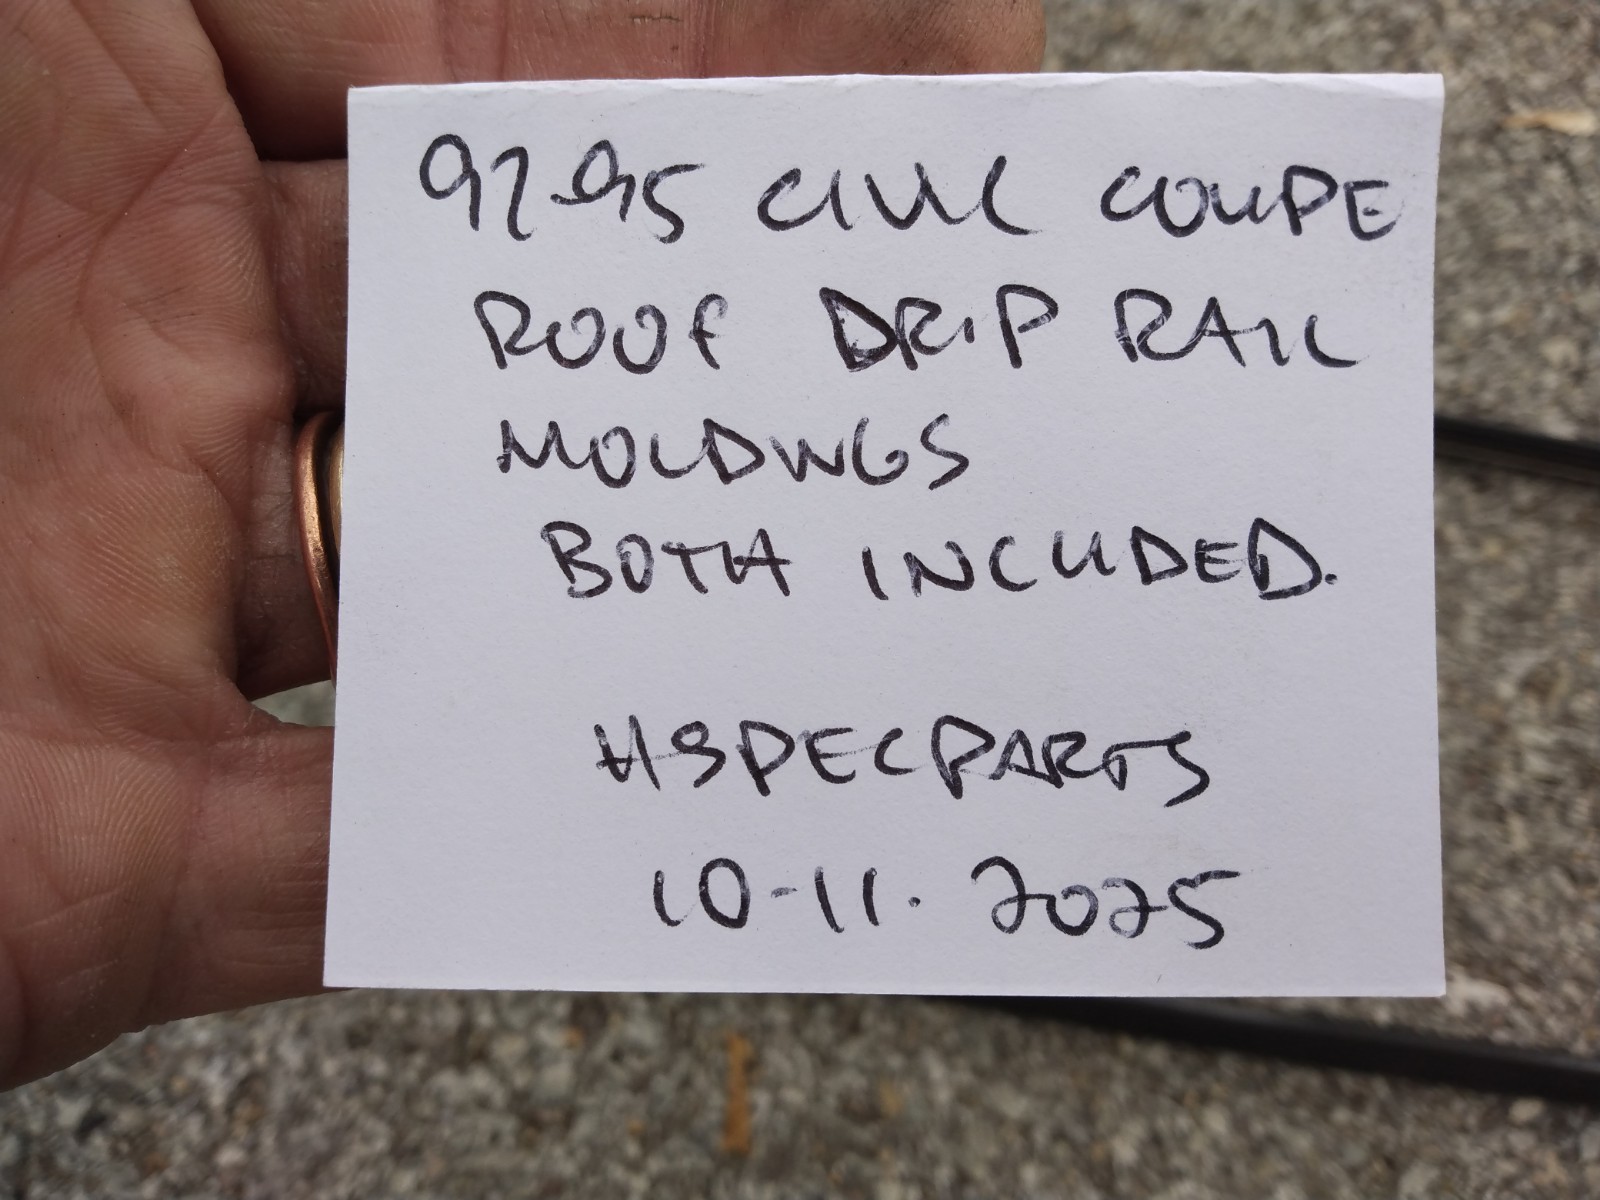 92-95 CIVIC COUPE
ROOF DRIP RAIL
MOLDINGS
BOTH INCLUDED.
HSPECPARTS
10-11. 2025